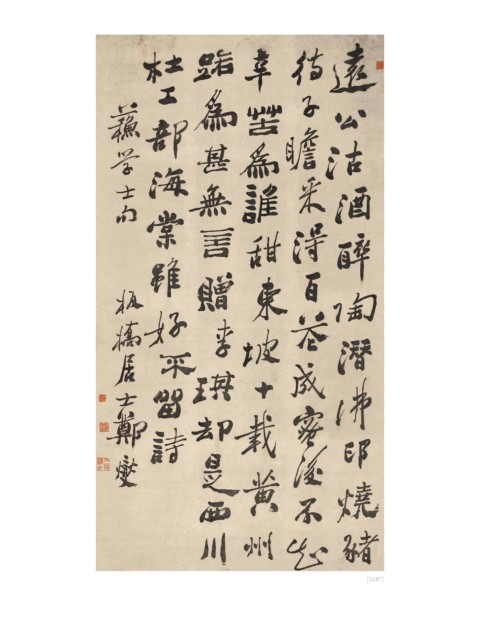 遠公沽酒醉陶潛佛印燒豬
待子瞻采得百花成蜜後不知
辛苦爲誰甜東坡十載黃州
爲甚無言贈李琪却是西川
杜工部海棠雖好不留詩
蘓学士句 板橋居士鄭燮
[5187]